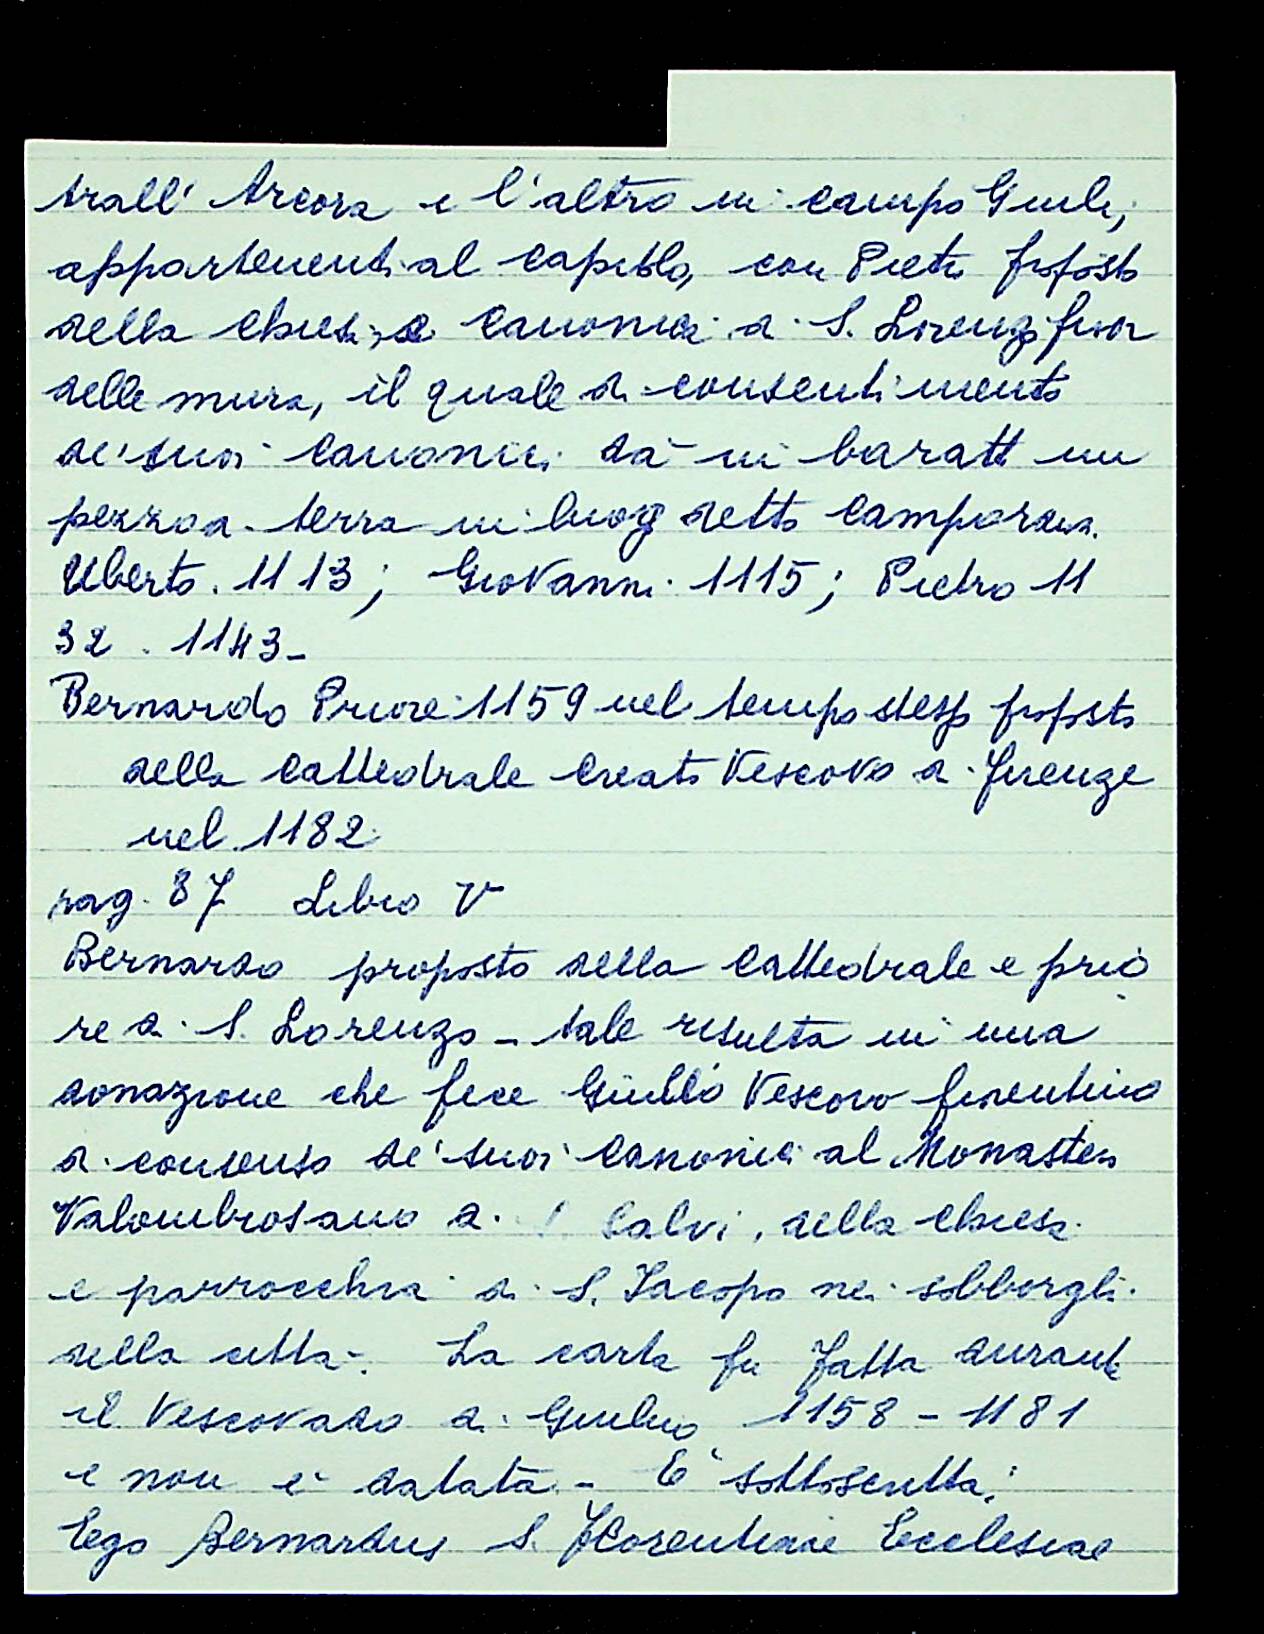 trall' Arcora e l'altro in campo
appartenenti al capitolo, con Pietro proposto
della chiesa, e canonica di S. Lorenzo fuor
delle mura, il quale di consentimento
de' suoi canonici dà in baratto un
pezzo di terra in luogo detto
Uberto. 1113; Giovanni. 1115; Pietro 11
32. 1143_
Bernardo Priore 1159 nel tempo stesso proposto
della Cattedrale creato Vescovo di Firenze
nel 1182
pag. 87 Libro V
Bernardo proposto della Cattedrale e prio
re di S. Lorenzo _ tale risulta in una
donazione che fece Giulio Vescovo fiorentino
di consenso de' suoi canonici al Monastero
Valombrosano di S. Salvi, della chiesa
e parrocchia di S. Jacopo nei sobborghi
della città. La carta fu fatta durante
il Vescovado di Giulio 1158 - 1181
e non è datata - E' sottoscritta:
Ego Bernardus S. Florentinae Ecclesiae